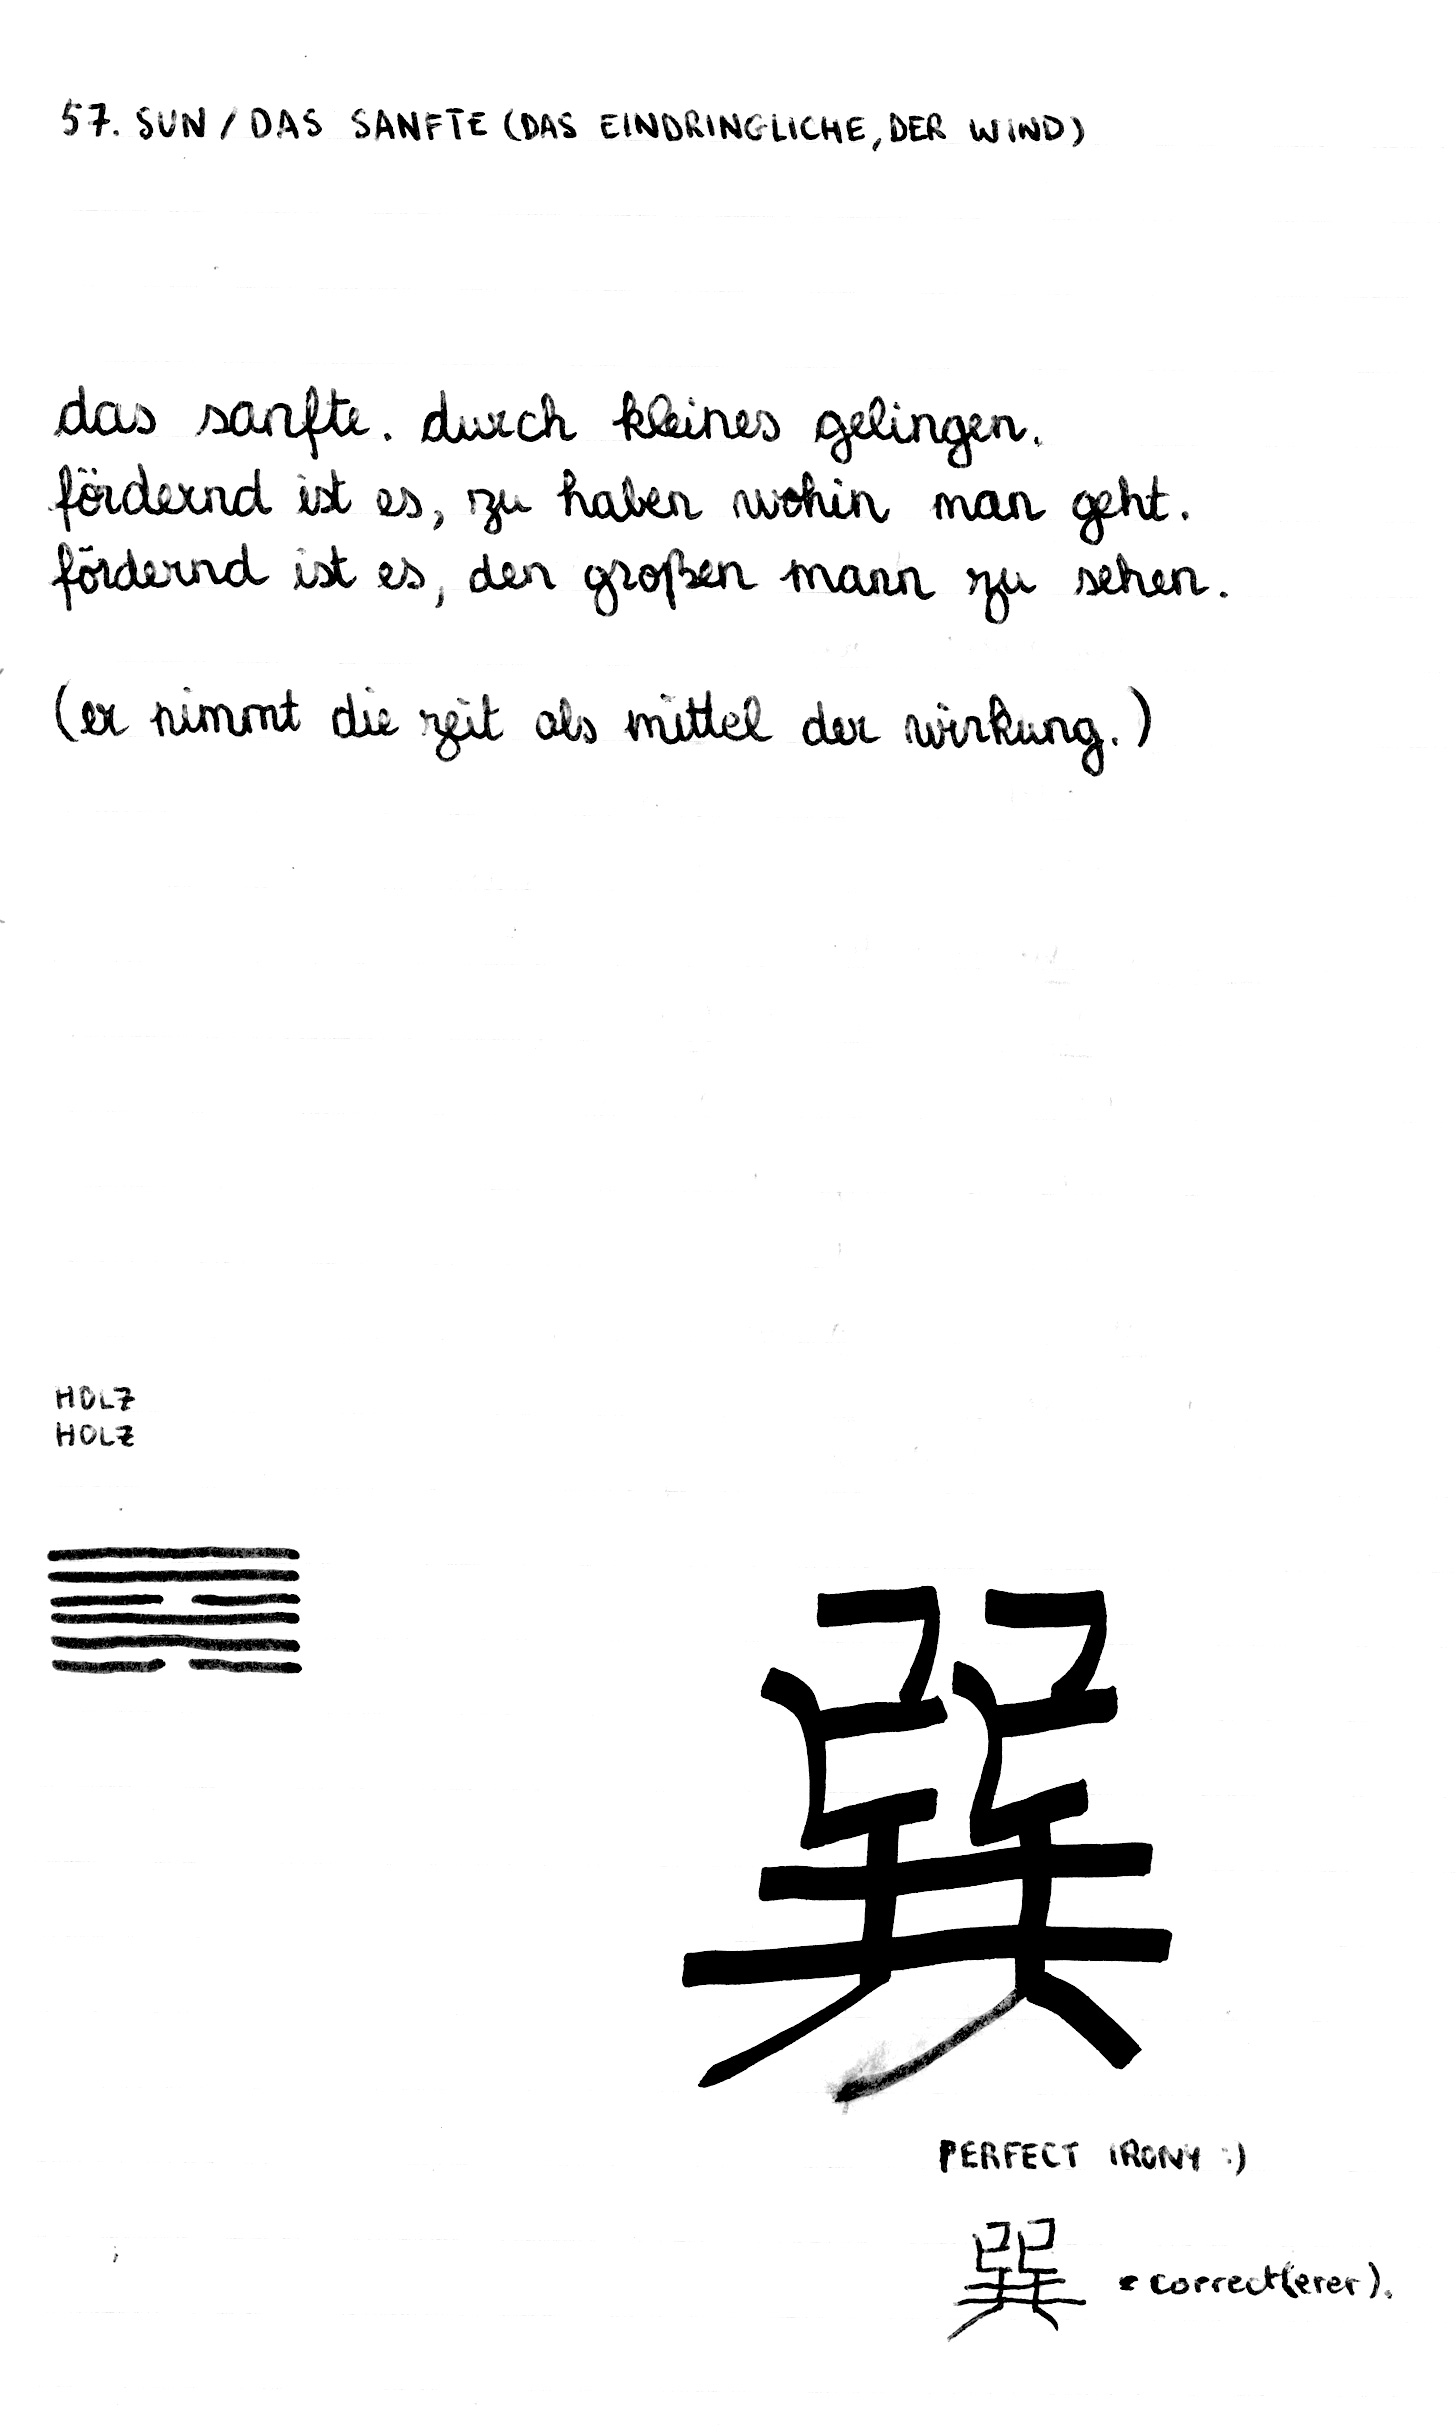 57. SUN / DAS SANFTE (DAS EINDRINGLICHE, DER WIND)
das sanfte. durch kleines gelingen.
fördernd ist es, zu haben wohin man geht.
fördernd ist es, den großen mann zu sehen.
(er nimmt die zeit als mittel der wirkung.)
HOLZ
HOLZ
巽
PERFECT IRONY :)
巽 = correct(erer).